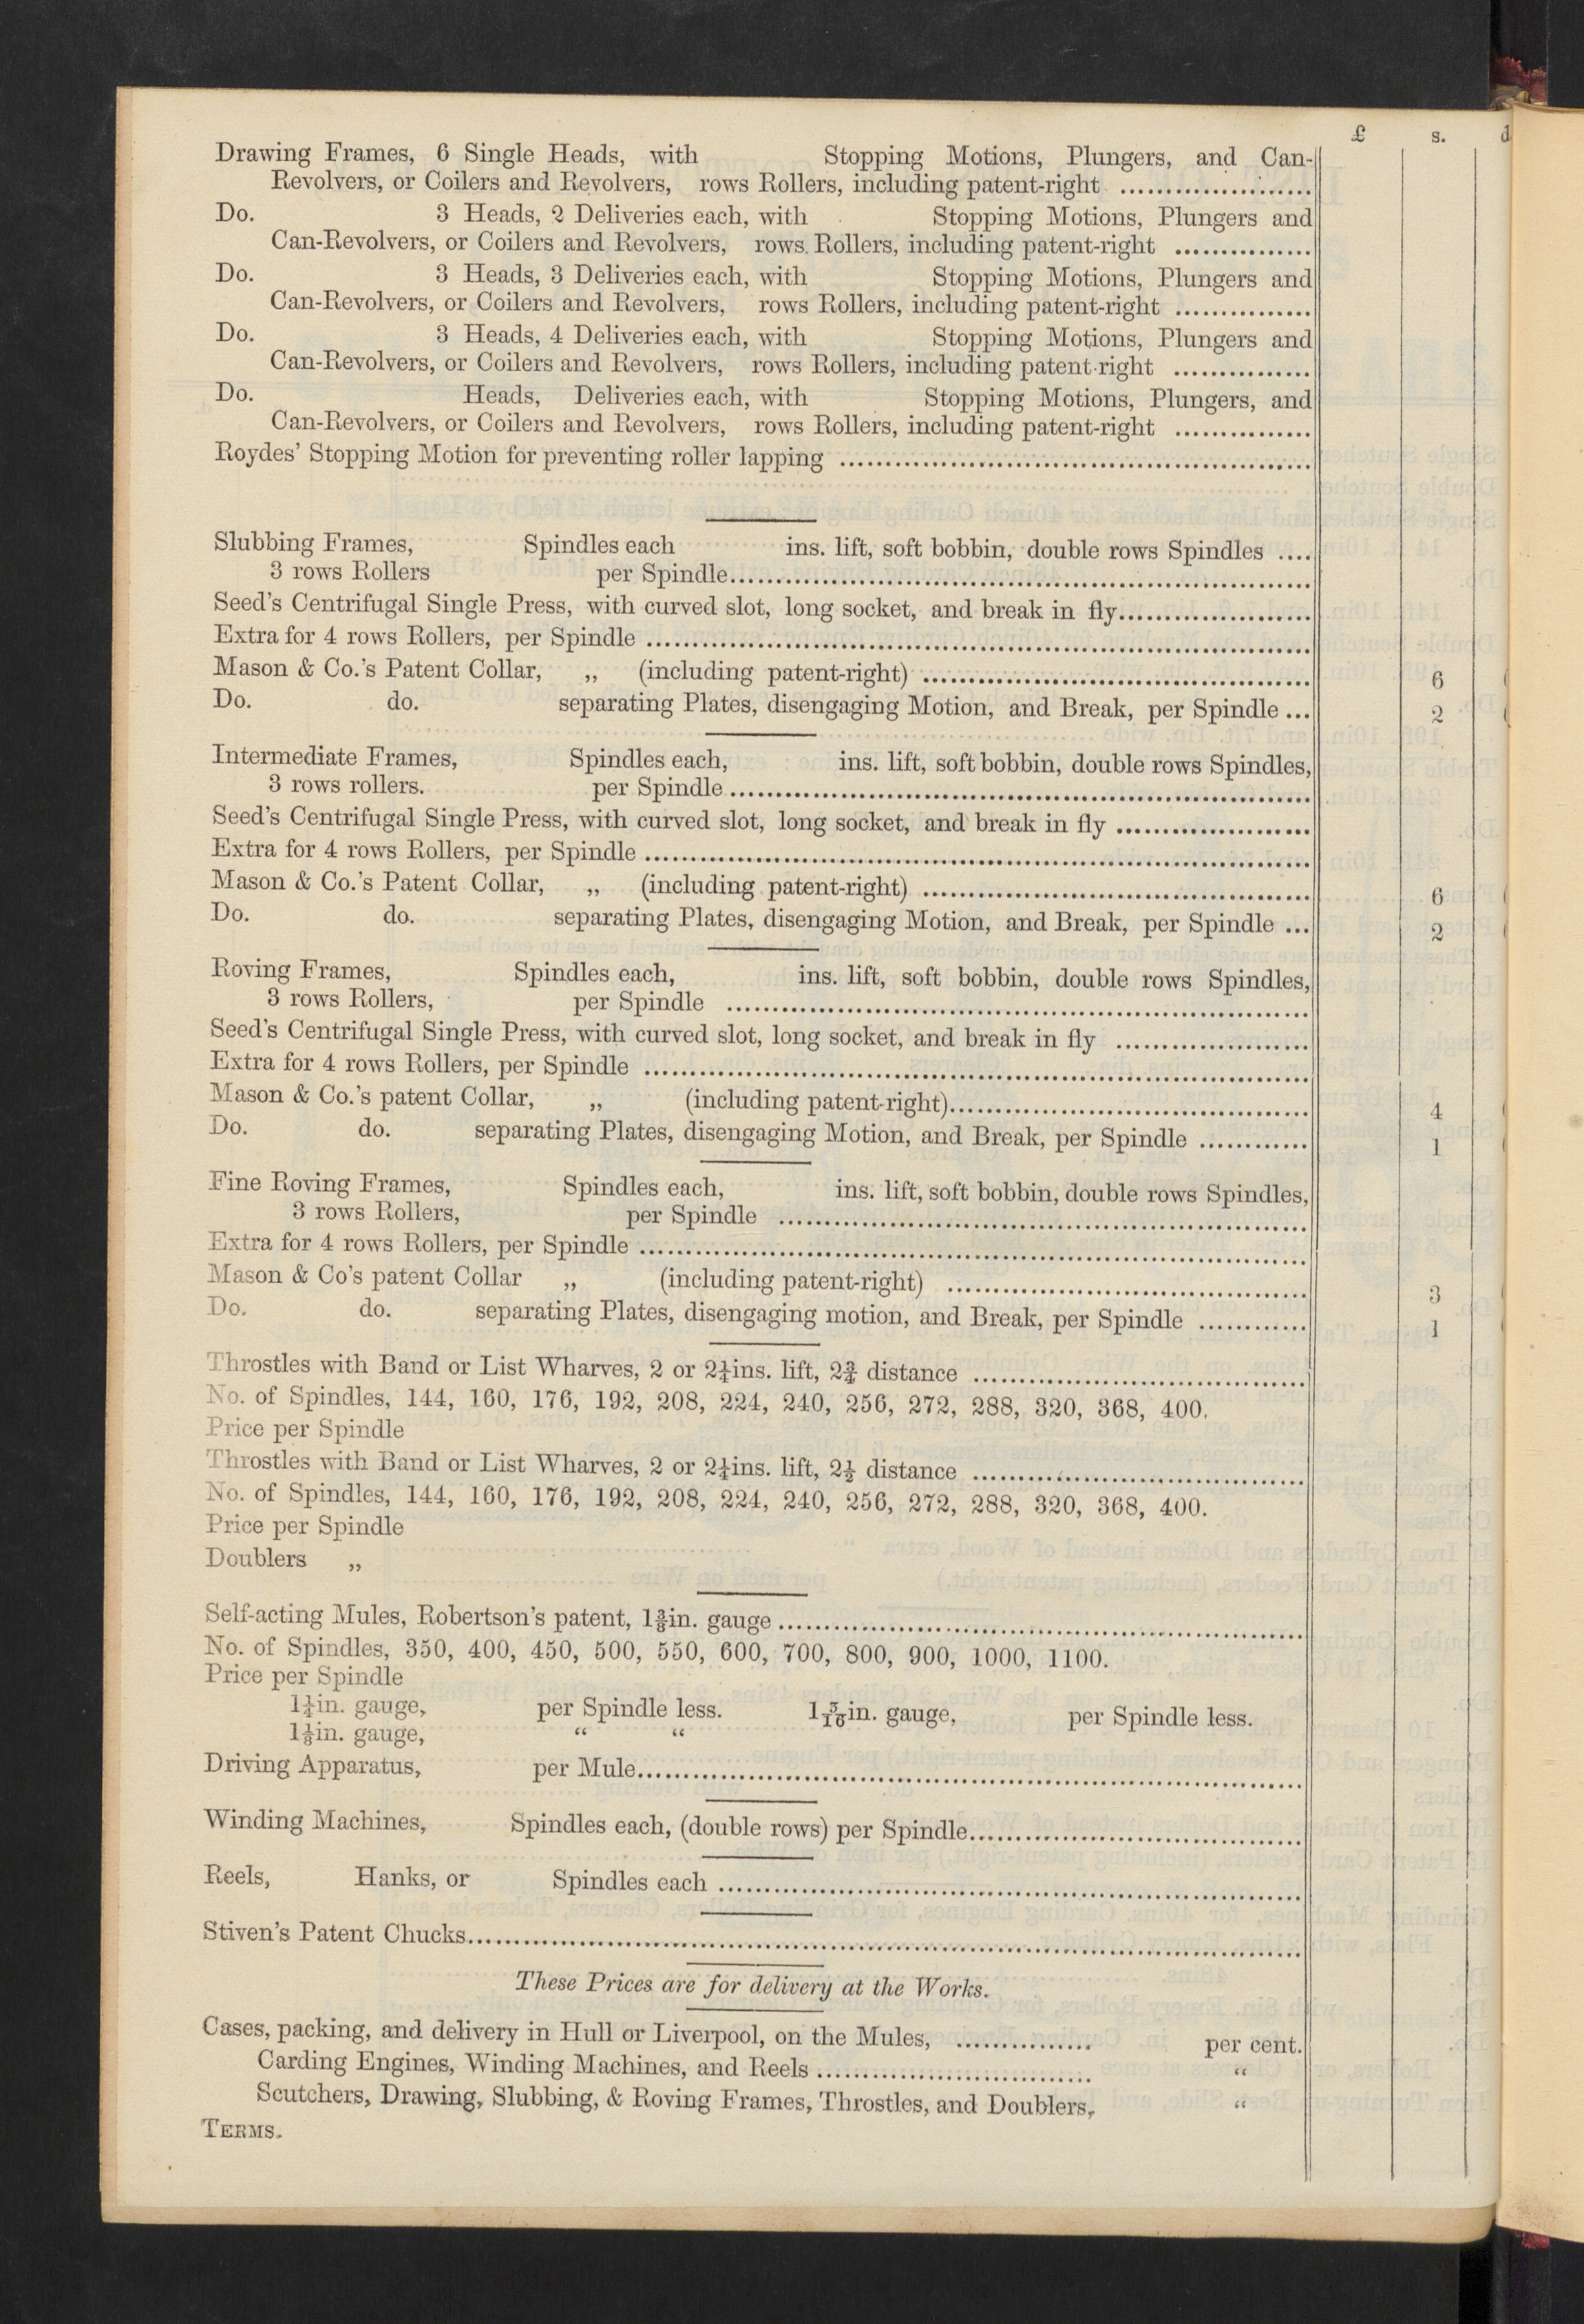 £ s. d
Drawing Frames, 6 Single Heads, with Stopping Motions, Plungers, and Can-
Revolvers, or Coilers and Revolvers, rows Rollers, including patent-right .....................
Do. 3 Heads, 2 Deliveries each, with Stopping Motions, Plungers and
Can-Revolvers, or Coilers and Revolvers, rows Rollers, including patent-right ...............
Do. 3 Heads, 3 Deliveries each, with Stopping Motions, Plungers and
Can-Revolvers, or Coilers and Revolvers, rows Rollers, including patent-right ...............
Do. 3 Heads, 4 Deliveries each, with Stopping Motions, Plungers and
Can-Revolvers, or Coilers and Revolvers, rows Rollers, including patent-right ...............
Do. Heads, Deliveries each, with Stopping Motions, Plungers, and
Can-Revolvers, or Coilers and Revolvers, rows Rollers, including patent-right ...............
Roydes' Stopping Motion for preventing roller lapping ....................................................
Slubbing Frames, Spindles each ins. lift, soft bobbin, double rows Spindles ....
3 rows Rollers per Spindle................................................................
Seed's Centrifugal Single Press, with curved slot, long socket, and break in fly.....................
Extra for 4 rows Rollers, per Spindle .........................................................................
Mason & Co.'s Patent Collar, „ (including patent-right) .......................................... 6
Do. do. separating Plates, disengaging Motion, and Break, per Spindle ... 2
Intermediate Frames, Spindles each, ins. lift, soft bobbin, double rows Spindles,
3 rows rollers. per Spindle................................................................
Seed's Centrifugal Single Press, with curved slot, long socket, and break in fly .....................
Extra for 4 rows Rollers, per Spindle .........................................................................
Mason & Co.'s Patent Collar, „ (including patent-right) .......................................... 6
Do. do. separating Plates, disengaging Motion, and Break, per Spindle ... 2
Roving Frames, Spindles each, ins. lift, soft bobbin, double rows Spindles,
3 rows Rollers, per Spindle ................................................................
Seed's Centrifugal Single Press, with curved slot, long socket, and break in fly .....................
Extra for 4 rows Rollers, per Spindle .........................................................................
Mason & Co.'s patent Collar, „ (including patent-right)....................................... 4
Do. do. separating Plates, disengaging Motion, and Break, per Spindle ............ 1
Fine Roving Frames, Spindles each, ins. lift, soft bobbin, double rows Spindles,
3 rows Rollers, per Spindle ..........................................................
Extra for 4 rows Rollers, per Spindle .........................................................................
Mason & Co's patent Collar „ (including patent-right) ....................................... 3
Do. do. separating Plates, disengaging motion, and Break, per Spindle ............ 1
Throstles with Band or List Wharves, 2 or 2¼ins. lift, 2¾ distance ....................................
No. of Spindles, 144, 160, 176, 192, 208, 224, 240, 256, 272, 288, 320, 368, 400.
Price per Spindle
Throstles with Band or List Wharves, 2 or 2¼ins. lift, 2½ distance ....................................
No. of Spindles, 144, 160, 176, 192, 208, 224, 240, 256, 272, 288, 320, 368, 400.
Price per Spindle
Doublers „
Self-acting Mules, Robertson's patent, 1⅜in. gauge..........................................................
No. of Spindles, 350, 400, 450, 500, 550, 600, 700, 800, 900, 1000, 1100.
Price per Spindle
1¼in. gauge, per Spindle less. 1 5/16in. gauge, per Spindle less.
1⅛in. gauge, “ “
Driving Apparatus, per Mule.........................................................................
Winding Machines, Spindles each, (double rows) per Spindle....................................
Reels, Hanks, or Spindles each ................................................................
Stiven's Patent Chucks...........................................................................................
These Prices are for delivery at the Works.
Cases, packing, and delivery in Hull or Liverpool, on the Mules, ............... per cent.
Carding Engines, Winding Machines, and Reels .............................. “
Scutchers, Drawing, Slubbing, & Roving Frames, Throstles, and Doublers, “
TERMS.